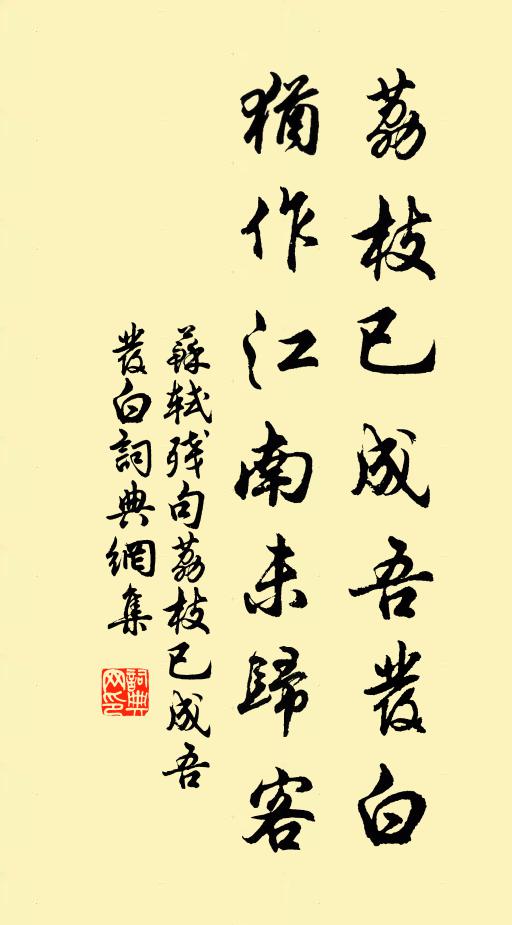 荔枝已成吾發白
猶作江南未歸客
蘇軾殘句荔枝已成吾
發白詞典網集
詞典
网印